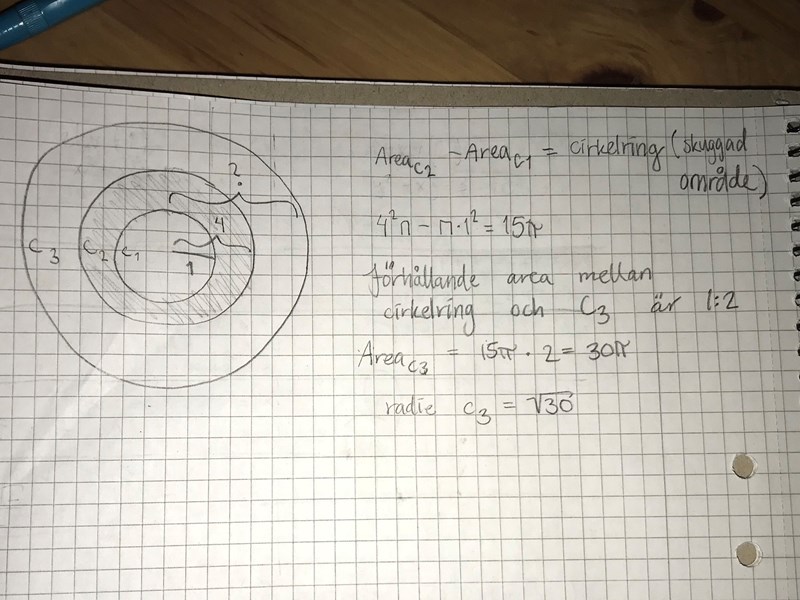 Area_C2 - Area_C1 = cirkelring (skuggad
område)
4²π - π·1² = 15π
förhållande area mellan
cirkelring och C3 är 1:2
Area_C3 = 15π · 2 = 30π
radie C3 = √30
?
4
C3 C2 C1
1